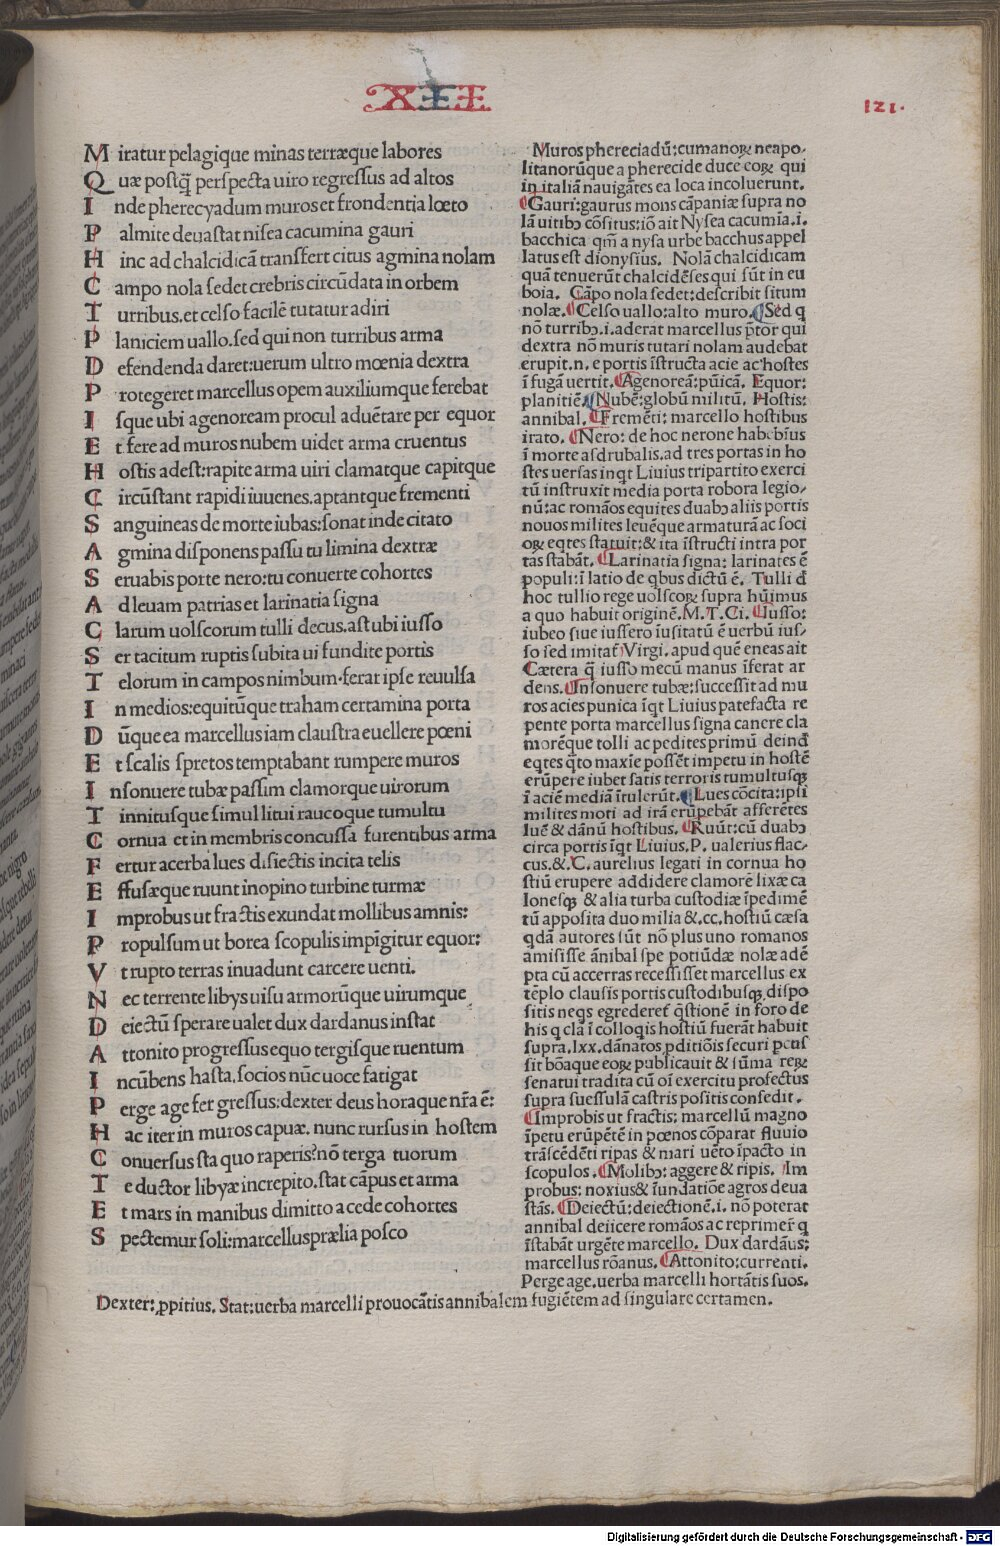 XII
121.
Miratur pelagique minas terræque labores
Quæ postq̃ perspecta uiro regressus ad altos
Inde pherecyadum muros et frondentia lœto
Palmite deuastat nisea cacumina gauri
Hinc ad chalcidicã transfert citus agmina nolam
Campo nola sedet crebris circũdata in orbem
Turribus. et celso facilẽ tutatur adiri
Planiciem uallo. sed qui non turribus arma
Defendenda daret: uerum ultro mœnia dextra
Protegeret marcellus opem auxiliumque ferebat
Isque ubi agenoream procul aduẽtare per equor
Et fere ad muros nubem uidet arma cruentus
Hostis adest: rapite arma uiri clamatque capitque
Circũstant rapidi iuuenes. aptantque frementi
Sanguineas de morte iubas: sonat inde citato
Agmina disponens passu tu limina dextræ
Seruabis porte nero: tu conuerte cohortes
Ad leuam patrias et larinatia signa
Clarum uolscorum tulli decus. ast ubi iusso
Ser tacitum ruptis subita ui fundite portis
Telorum in campos nimbum. ferat ipse reuulsa
In medios: equitũque traham certamina porta
Dũque ea marcellus iam claustra euellere pœni
Et scalis spretos temptabant rumpere muros
Insonuere tubæ passim clamorque uirorum
Tinnitusque simul litui raucoque tumultu
Cornua et in membris concussa furentibus arma
Fertur acerba lues disiectis incita telis
Effusæque ruunt inopino turbine turmæ
Improbus ut fractis exundat mollibus amnis:
Propulsum ut borea scopulis impĩgitur equor:
Vt rupto terras inuadunt carcere uenti.
Nec terrente libys uisu armorũque uirumque
Deiectũ sperare ualet dux dardanus instat
Attonito progressus equo tergisque ruentum
Incũbens hasta. socios nũc uoce fatigat
Perge age fer gressus: dexter deus horaque nr̃a ẽ:
Hac iter in muros capuæ. nunc rursus in hostem
Conuersus sta quo raperis? nõ terga tuorum
Te ductor libyæ increpito. stat cãpus et arma
Et mars in manibus dimitto a cede cohortes
Spectemur soli: marcellus prælia posco
Muros phereciadũ: cumanoꝝ neapo/
litanorũque a pherecide duce eoꝝ qui
in italiã nauigãtes ea loca incoluerunt.
Gauri: gaurus mons cãpaniæ supra no
lã uitibꝰ cõsitus: iõ ait Nysea cacumĩa. i.
bacchica qm̃ a nysa urbe bacchus appel
latus est dionysius. Nolã chalcidicam
quã tenuerũt chalcidẽses qui sũt in eu
boia. Cãpo nola sedet: describit situm
nolæ. Celso uallo: alto muro. Sed q
nõ turribꝰ. i. aderat marcellus p̃tor qui
dextra nõ muris tutari nolam audebat
erupit. n. e portis ĩstructa acie ac hostes
ĩ fugã uertit. Agenoreã: pũicã. Equor:
planitiẽ. Nubẽ: globũ militũ. Hostis:
annibal. Fremẽti: marcello hostibus
irato. Nero: de hoc nerone habebĩus
ĩ morte asdrubalis. ad tres portas in ho
stes uersas inqt Liuius tripartito exerci
tũ instruxit media porta robora legio/
nũ: ac romãos equites duabꝰ aliis portis
nouos milites leuẽque armaturã ac soci
oꝝ eqtes statuit: & ita ĩstructi intra por
tas stabãt. Larinatia signa: larinates ẽ
populi: ĩ latio de qbus dictũ ẽ. Tulli d̃
hoc tullio rege uolscoꝝ supra hũimus
a quo habuit originẽ. M. T. Ci. Iusso:
iubeo siue iussero iusitatũ ẽ uerbũ ius/
so sed imitat̃ Virgi. apud quẽ eneas ait
Cætera q̃ iusso mecũ manus ĩferat ar
dens. Insonuere tubæ: successit ad mu
ros acies punica ĩqt Liuius patefacta re
pente porta marcellus signa canere cla
morẽque tolli ac pedites primũ deinđ
eqtes q̃to maxĩe possẽt impetu in hostẽ
erũpere iubet satis terroris tumultusqꝫ
ĩ aciẽ mediã ĩtulerũt. Lues cõcita: ipsi
milites moti ad irã erũpebãt afferẽtes
luẽ & dãnũ hostibus. Ruũt: cũ duabꝰ
circa portis ĩqt Liuius. P. ualerius flac/
cus. &. C. aurelius legati in cornua ho
stiũ erupere addidere clamorẽ lixæ ca
lonesqꝫ & alia turba custodiæ ĩpedimẽ
tũ apposita duo milia &. cc. hostiũ cæsa
qdã autores sũt nõ plus uno romanos
amisisse ãnibal spe potiũdæ nolæ adẽ
pta cũ accerras recessisset marcellus ex
tẽplo clausis portis custodibusqꝫ dispo
sitis neqs egrederet̃ q̃stionẽ in foro de
his q clã ĩ colloqis hostiũ fuerãt habuit
supra. lxx. dãnatos pditiõis securi pcus
sit bõaque eoꝝ publicauit & sũma reꝝ
senatui tradita cũ oĩ exercitu profectus
supra suessulã castris positis consedit.
Improbis ut fractis: marcellũ magno
ĩpetu erũpẽtẽ in pœnos cõparat fluuio
trãscẽdẽti ripas & mari uẽto ĩpacto in
scopulos. Molibꝰ: aggere & ripis. Im
probus: noxius & ĩundatiõe agros deua
stãs. Deiectũ: deiectionẽ. i. nõ poterat
annibal deiicere romãos ac reprimer̃ q
ĩstabãt urgẽte marcello. Dux dardãus:
marcellus rõanus. Attonito: currenti.
Perge age. uerba marcelli hortãtis suos.
Dexter: ꝓpitius. Stat: uerba marcelli prouocãtis annibalem fugiẽtem ad singulare certamen.
Digitalisierung gefördert durch die Deutsche Forschungsgemeinschaft - DFG